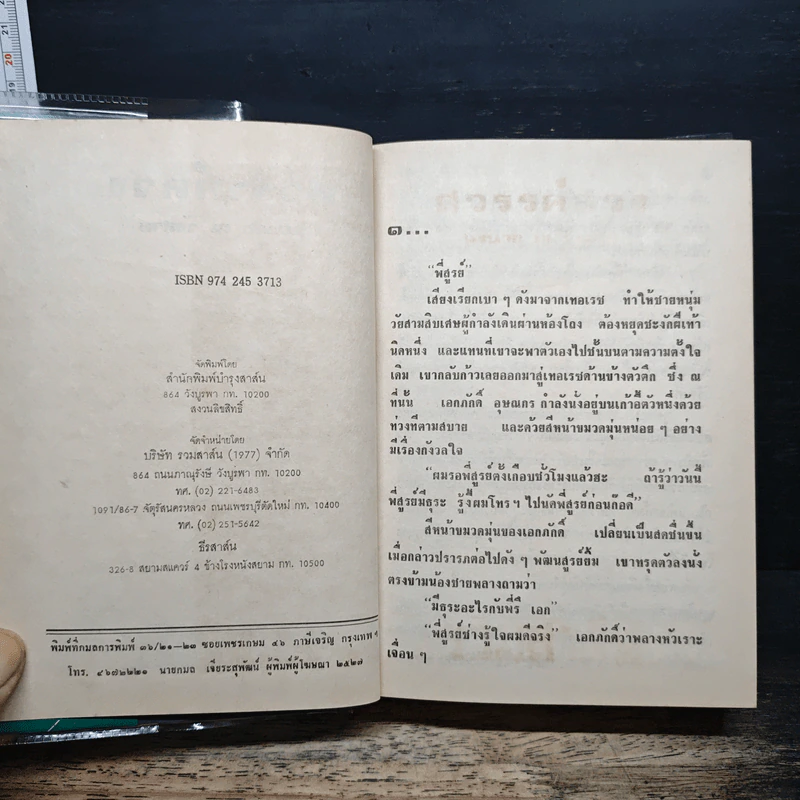 ISBN 974 245 3713
จัดพิมพ์โดย
สำนักพิมพ์บำรุงสาส์น
864 วังบูรพา กท. 10200
สงวนลิขสิทธิ์
จัดจำหน่ายโดย
บริษัท รวมสาส์น (1977) จำกัด
864 ถนนภาณุรังษี วังบูรพา กท. 10200
ทศ. (02) 221-6483
1091/86-7 จัตุรัสนครหลวง ถนนเพชรบุรีตัดใหม่ กท. 10400
ทศ. (02) 251-5642
ธีรสาส์น
326-8 สยามสแควร์ 4 ข้างโรงหนังสยาม กท. 10500
พิมพ์ที่กมลการพิมพ์ ๓๖/๒๑—๒๓ ซอยเพชรเกษม ๔๖ ภาษีเจริญ กรุงเทพ ฯ
โทร. ๔๖๗๒๒๒๑ นายกมล เจียระสุพัฒน์ ผู้พิมพ์ผู้โฆษณา ๒๕๒๗
๑...
“พี่สูรย์”
เสียงเรียกเบา ๆ ดังมาจากเทอเรซ ทำให้ชายหนุ่ม
วัยสามสิบเศษผู้กำลังเดินผ่านห้องโถง ต้องหยุดชะงักฝีเท้า
นิดหนึ่ง และแทนที่เขาจะพาตัวเองไปชั้นบนตามความตั้งใจ
เดิม เขากลับก้าวเลยออกมาสู่เทอเรซด้านข้างตัวตึก ซึ่ง ณ
ที่นั้น เอกภักดิ์ อุษณกร กำลังนั่งอยู่บนเก้าอี้ตัวหนึ่งด้วย
ท่วงทีตามสบาย และด้วยสีหน้าขมวดมุ่นหน่อย ๆ อย่าง
มีเรื่องกังวลใจ
“ผมรอพี่สูรย์ตั้งเกือบชั่วโมงแล้วฮะ ถ้ารู้ว่าวันนี้
พี่สูรย์มีธุระ รู้งี้ผมโทรฯ ไปนัดพี่สูรย์ก่อนก็อดี”
สีหน้าขมวดมุ่นของเอกภักดิ์ เปลี่ยนเป็นสดชื่นขึ้น
เมื่อกล่าวปรารภต่อไปดัง ๆ พัฒนสูรย์ยิ้ม เขาทรุดตัวลงนั่ง
ตรงข้ามน้องชายพลางถามว่า
“มีธุระอะไรกับพี่รึ เอก”
“พี่สูรย์ช่างรู้ใจผมดีจริง” เอกภักดิ์ว่าพลางหัวเราะ
เจื่อน ๆ